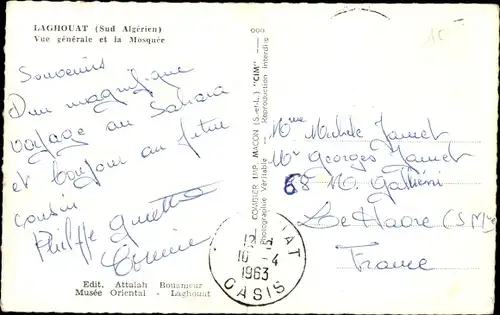 LAGHOUAT (Sud Algérien)
Vue générale et la Mosquée
Souvenirs
D'un magnifique
voyage au Sahara
et bonjour au futur
cousin
Philippe
Edit. Attalah Bouameur
Musée Oriental - Laghouat
COMBIER IMP. MACON (S.-et-L.) "CIM"
Photographie Véritable - Reproduction Interdite
Mme Michèle Jamet
Mr Georges Jamet
68 Galliéni
Le Havre (S Me)
France
12 H
10 - 4
1963
OASIS